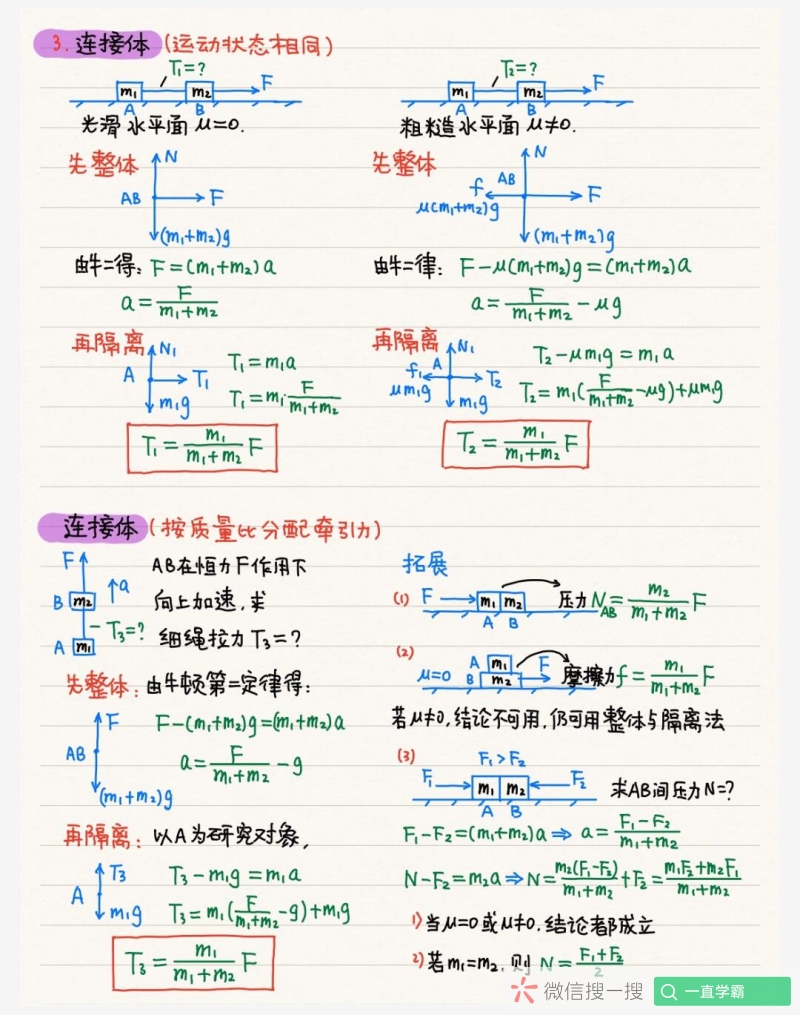 3. 连接体 (运动状态相同)
T₁=?
m₁ m₂ F
A B
光滑水平面 μ=0.
先整体
N
AB F
(m₁+m₂)g
由牛二得: F=(m₁+m₂)a
a=F/(m₁+m₂)
再隔离
N₁
A T₁
m₁g
T₁=m₁a
T₁=m₁·F/(m₁+m₂)
T₁=m₁/(m₁+m₂) F
T₂=?
m₁ m₂ F
A B
粗糙水平面 μ≠0.
先整体
N
f AB F
μ(m₁+m₂)g
(m₁+m₂)g
由牛二律: F-μ(m₁+m₂)g=(m₁+m₂)a
a=F/(m₁+m₂)-μg
再隔离
N₁
f₁ A T₂
μm₁g m₁g
T₂-μm₁g=m₁a
T₂=m₁(F/(m₁+m₂)-μg)+μm₁g
T₂=m₁/(m₁+m₂) F
连接体 (按质量比分配牵引力)
F
a
B m₂
T₃=?
A m₁
AB在恒力F作用下
向上加速,求
细绳拉力T₃=?
先整体: 由牛顿第二定律得:
F
AB
(m₁+m₂)g
F-(m₁+m₂)g=(m₁+m₂)a
a=F/(m₁+m₂)-g
再隔离: 以A为研究对象,
T₃
A
m₁g
T₃-m₁g=m₁a
T₃=m₁(F/(m₁+m₂)-g)+m₁g
T₃=m₁/(m₁+m₂) F
拓展
(1) F m₁ m₂ 压力N_AB=m₂/(m₁+m₂) F
A B
(2)
μ=0 A m₁ F 摩擦力f=m₁/(m₁+m₂) F
B m₂
若μ≠0,结论不可用,仍可用整体与隔离法
(3) F₁>F₂
F₁ m₁ m₂ F₂ 求AB间压力N=?
A B
F₁-F₂=(m₁+m₂)a⇒a=(F₁-F₂)/(m₁+m₂)
N-F₂=m₂a⇒N=m₂(F₁-F₂)/(m₁+m₂)+F₂=(m₁F₂+m₂F₁)/(m₁+m₂)
1)当μ=0或μ≠0,结论都成立
2)若m₁=m₂,则N=(F₁+F₂)/2
微信搜一搜 一直学霸